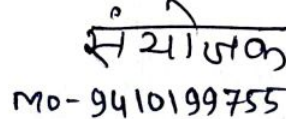 संयोजक
mo- 9410199755